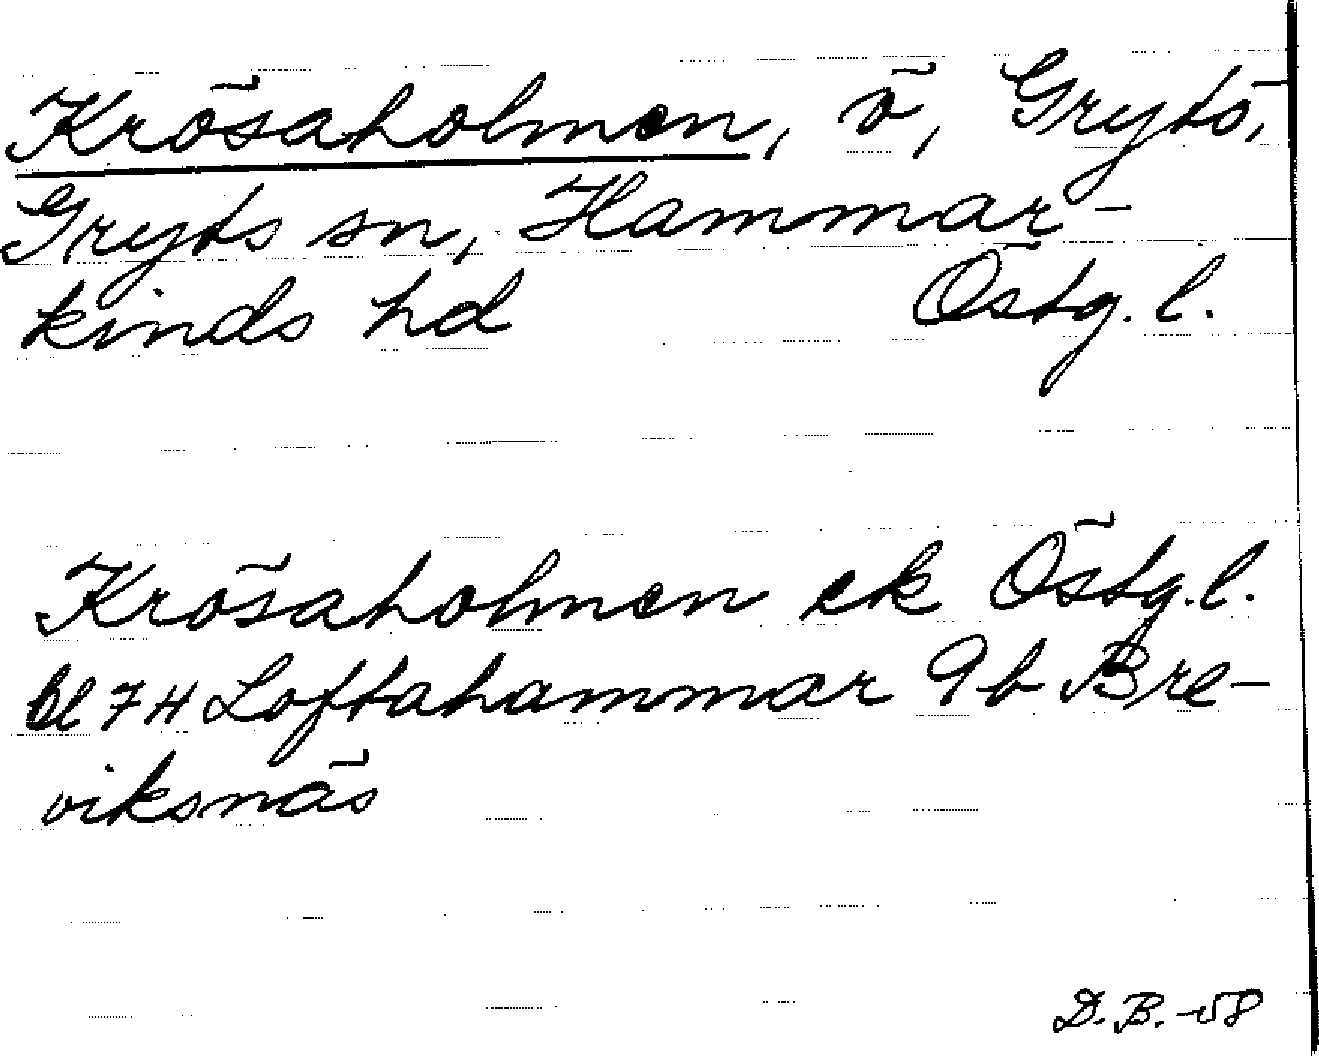 Krösaholmen, ö, Grytö,
Gryts sn, Hammar-
kinds hd Östg. l.
Krösaholmen ek Östg. l.
bl 7H Loftahammar 9b Bre-
viksnäs
D. B. -58